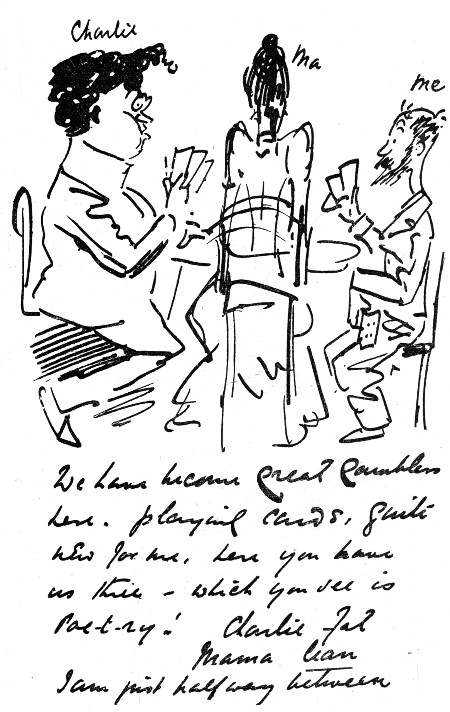 Charlie
Ma
me
We have become great Gamblers
here. playing cards, quite
new for me, here you have
us three – which you see is
Poe-t-ry! Charlie Fat
Mama lean
I am just half way between